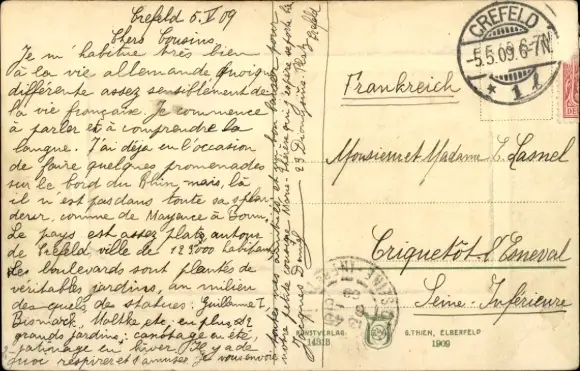 Crefeld 5.V 09
Chers Cousins,
Je m'habitue très bien
à la vie allemande quoique
différente assez sensiblement de
la vie française. Je commence
à parler et à comprendre la
langue. J'ai déja eu l'occasion
de faire quelques promenades
sur le bord du Rhin, mais, là
il n'est pas dans toute sa splen-
deur, comme de Mayence à Bonn.
Le pays est assez plat autour
de Crefeld ville de 125000 habitants
Les boulevards sont plantés de
véritables jardins, au milieu
desquels des statues: Guillaume I,
Bismarck, Moltke, etc, en plus de
grands jardins: canotage en été,
patinage en hiver. Il y a de
quoi respirer et s'amuser. Je vous envoie
toutes mes et un bon pour
notre petite cousine Marie-
Jacques
29 Crefeld
CREFELD
5.5.09.6-7N.
* 1 l
Frankreich
Monsieur et Madame Lasnel
Criquetôt l'Esneval
Seine-Inférieure
KUNSTVERLAG G.THIEN, ELBERFELD
1909